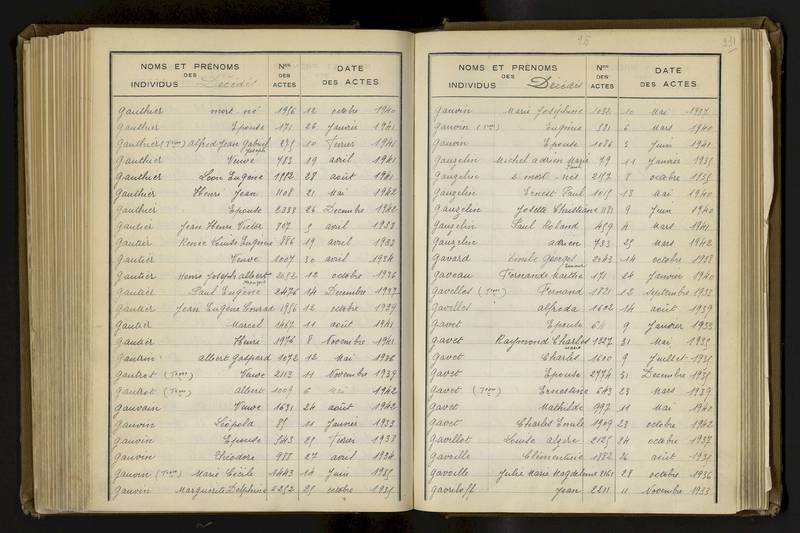 NOMS ET PRÉNOMS DES INDIVIDUS Décédés NOS DES ACTES DATE DES ACTES
Gauthier mort né 1956 12 octobre 1940
Gauthier Epouse 171 26 Janvier 1941
Gauthier alfred Jean Gabriel Joseph 10 Février 1941
Gauthier Veuve 783 19 avril 1941
Gauthier Léon Eugène 28 août 1941
Gauthier Henri Jean 1108 21 Mai 1942
Gauthier Epouse 2333 26 Décembre 1942
Gautier Jean Henri Victor 807 5 avril 1933
Gautier Renée Louise Eugénie 886 19 avril 1933
Gautier Veuve 1007 30 avril 1934
Gautier Henri Joseph albert 2052 12 octobre 1936
Gautier Paul Eugène 2476 14 Décembre 1937
Gautier Jean Eugène Conrad 1956 12 octobre 1939
Gautier Marcel 1467 11 août 1941
Gautier Henri 1976 8 Novembre 1941
albert Gaspard 1072 12 Mai 1936
Gautrot Veuve 2113 11 Novembre 1939
Gautrot albert 1009 6 Mai 1942
Gauvain Veuve 1631 24 août 1942
Gauvin Léopold 85 11 Janvier 1933
Gauvin Epouse 343 25 Février 1938
Gauvin Théodore 988 27 avril 1934
Gauvin Marie Cécile 1443 14 Juin 1935
Gauvin Marguerite Delphine 2252 25 octobre 1935
331
NOMS ET PRÉNOMS DES INDIVIDUS Décédés NOS DES ACTES DATE DES ACTES
Gauvin Marie Joséphine 1032 10 Mai 1937
Gauvin Eugénie 531 6 Mars 1940
Gauvin Epouse 1036 5 Juin 1941
Gauzelin Michel adrien Marie 79 11 Janvier 1935
Gauzelin mort-nés 2157 8 octobre 1935
Gauzelin Ernest Paul 1015 13 Mai 1940
Gauzelin Josette Christiane 1181 9 Juin 1940
Gauzelin Paul Roland 459 4 Mars 1941
Gauzelin adrien 733 25 Mars 1942
Gavard Emile Georges 2043 14 octobre 1938
Gaveau Fernande Marthe 171 24 Janvier 1940
Gavelles Fernand 1821 12 Septembre 1933
Gavelles alfreda 1602 14 août 1939
Gavet Epouse 9 Janvier 1933
Gavet Raymond Charles 1327 31 Mai 1935
Gavet Charles 1600 9 Juillet 1935
Gavet Epouse 2774 31 Décembre 1935
Gavet Ernestine 643 23 Mars 1939
Gavet Mathilde 997 11 Mai 1940
Gavet Charles Emile 1909 23 octobre 1942
Gavillot Louise 2125 24 octobre 1937
Gaville Clémentine 1882 26 août 1935
Gaville Julie Marie Magdeleine 2161 28 octobre 1936
Gavriloff Jean 2211 11 Novembre 1933